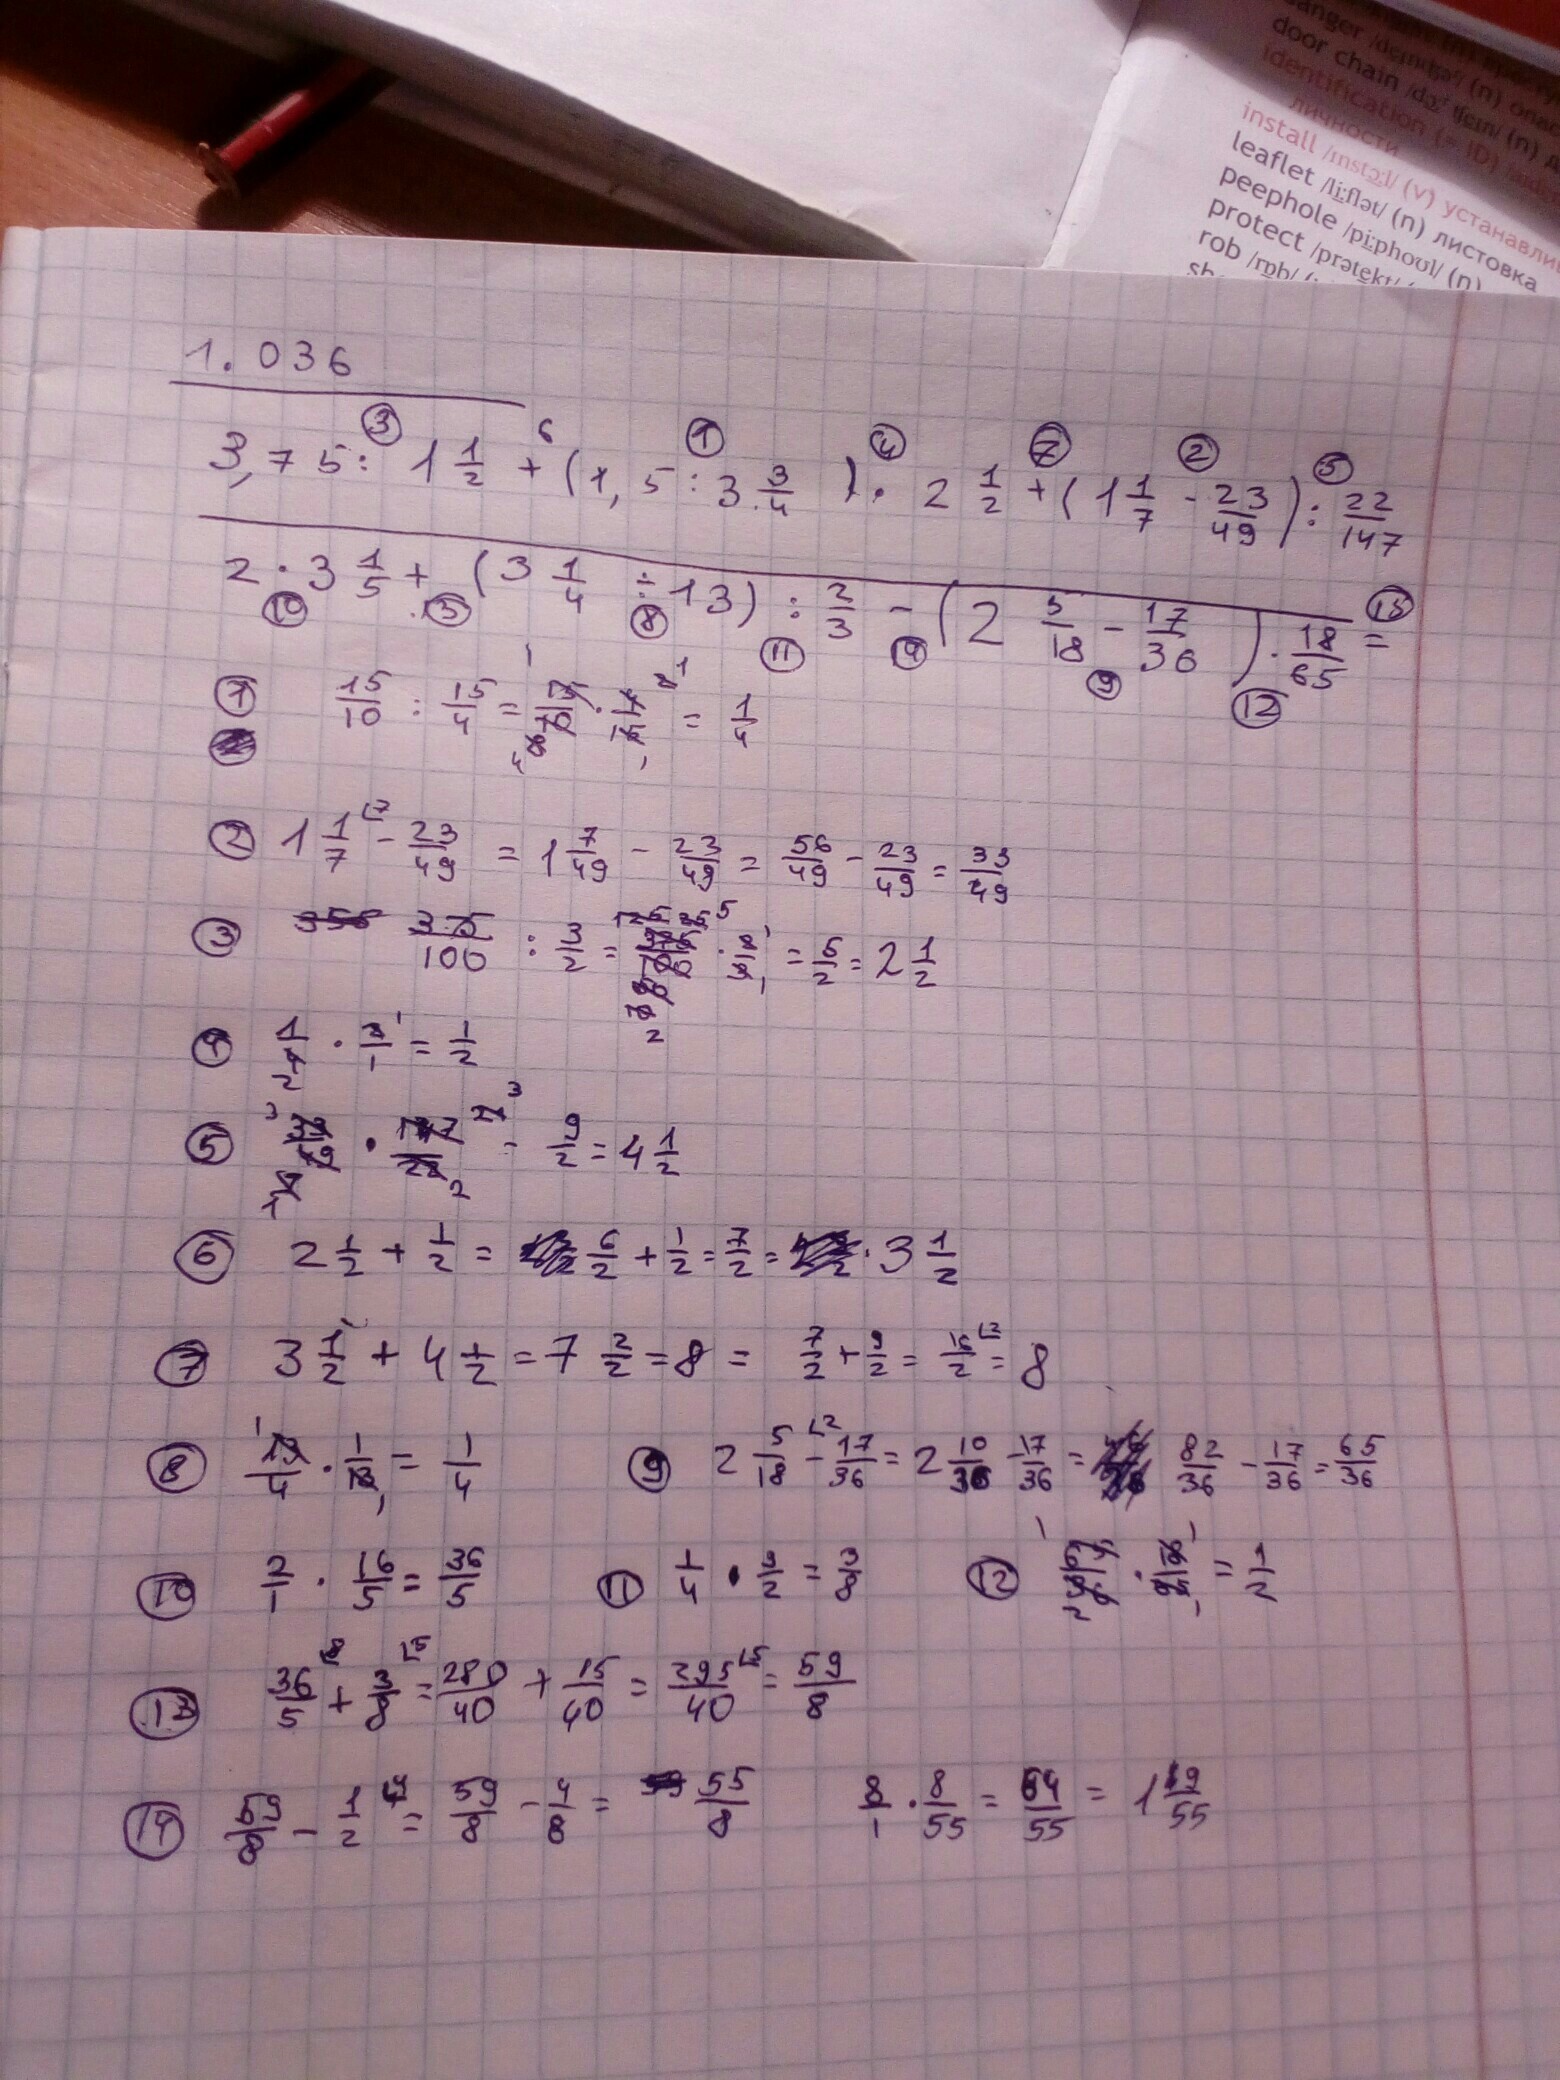 danger /deɪndʒəʳ/ (n) опас
door chain /dɔːʳ tʃeɪn/ (n)
identification (= ID)
личности
install /ɪnstɔːl/ (v) устанавли
leaflet /liːflət/ (n) листовка
peephole /piːphoʊl/ (n)
protect /prətekt/
rob /rɒb/
1.036
3,75 : 1 1/2 + (1,5 : 3 3/4) · 2 1/2 + (1 1/7 - 23/49) : 22/147
③ 6 ① ④ ⑦ ② ⑤
2 · 3 1/5 + (3 1/4 : 13) : 2/3 - (2 5/18 - 17/36) · 18/65 =
⑩ ⑬ ⑧ ⑪ ⑭ ⑨ ⑫ ⑮
① 15/10 : 15/4 = 15/10 · 4/15 = 1/4
② 1 1/7 - 23/49 = 1 7/49 - 23/49 = 56/49 - 23/49 = 33/49
③ 375/100 : 3/2 = 375/100 · 2/3 = 5/2 = 2 1/2
④ 1/4 · 2/1 = 1/2
⑤ 33/49 · 147/22 = 9/2 = 4 1/2
⑥ 2 1/2 + 1/2 = 6/2 + 1/2 = 7/2 = 3 1/2
⑦ 3 1/2 + 4 1/2 = 7 2/2 = 8 = 7/2 + 9/2 = 16/2 = 8
⑧ 13/4 · 1/13 = 1/4 ⑨ 2 5/18 - 17/36 = 2 10/36 - 17/36 = 82/36 - 17/36 = 65/36
⑩ 2/1 · 16/5 = 36/5 ⑪ 1/4 · 3/2 = 3/8 ⑫ 65/36 · 18/65 = 1/2
⑬ 36/5 + 3/8 = 280/40 + 15/40 = 295/40 = 59/8
⑭ 59/8 - 1/2 = 59/8 - 4/8 = 55/8 8/1 · 8/55 = 64/55 = 1 19/55